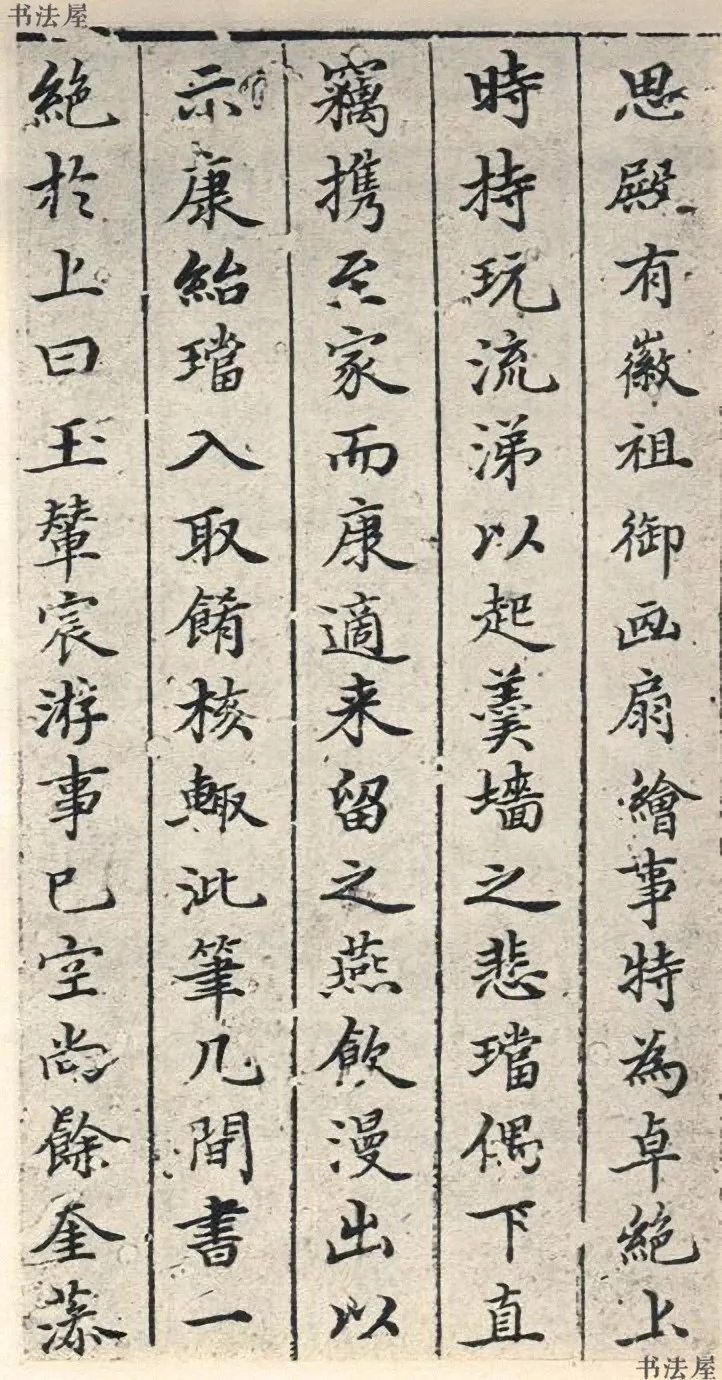 书法屋
思殿有徽祖御画扇繪事特為卓絶上
時持玩流涕以起羹墻之悲璫偶下直
竊携至家而康適来留之燕飲漫出以
示康紿璫入取餚核輙泚筆几間書一
絶於上曰玉輦宸游事已空尚餘奎藻
书法屋